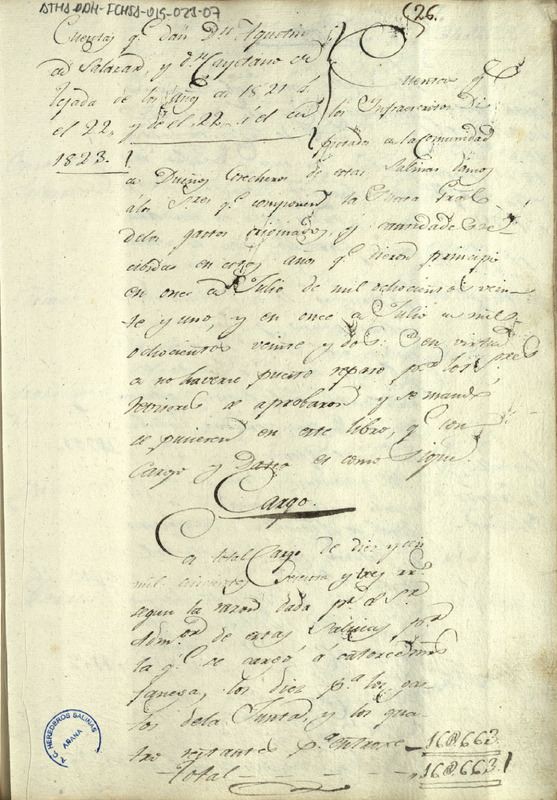 ATHA-DAH-FCHSA-015-021-07
26.
Cuentas qe. dan Dn. Agustin
de Salazar, y Dn. Cayetano de
Tejada de los años de 1821 á
el 22, y de el 22 á el de
1823.
Cuentas qe.
los Infraescritos Di-
putados de la comunidad
de Dueños Erederos de estas Salinas damos
a los Sres. qe. componen la Junta Gral.
de los gastos y cantidades re-
cibidas en estos años qe. dieron principio
en once de Julio de mil ochocientos vein-
te y uno, y en once de Julio de mil
ochocientos veinte y dos: en virtud
de no haverse puesto reparo por los Sres.
se aprobaron y se mandó
se pusieren en este libro, qe. con
Cargo y Data es como Sigue
Cargo.
total Cargo de diez y seis
mil seiscientos sesenta y tres rs.
segun la razon dada pr. el Sr.
Admor. de estas Salinas, pr.
la qe. se cargó á catorce mrs.
fanega, los diez pa. los gas-
tos de la Junta, y los qua-
tro restantes pa. 16@.663
Total 16@.663
A.C. HEREDEROS SALINAS
AÑANA